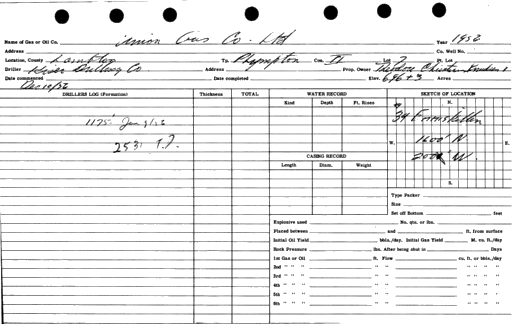 Name of Gas or Oil Co. Union Gas Co. Ltd Year 1952
Address Co. Well No.
Location, County Lambton Tp. Plympton Con. II Lot Pt. Lot
Driller Drilling Co Address Prop. Owner Theodore
Date commenced Date completed Elev. 696+3 Acres
DRILLERS LOG (Formation) Thickness TOTAL WATER RECORD SKETCH OF LOCATION
Kind Depth Ft. Rises N.
1175' Jan 9/52
2531 T.D.
W. 1600' N E.
CASING RECORD 200' W.
Length Diam. Weight
S.
Type Packer
Size
Set off Bottom feet
Explosive used No. qts. or lbs.
Placed between and ft. from surface
Initial Oil Yield bbls./day. Initial Gas Yield M. cu. ft./day
Rock Pressure lbs. After being shut in Days
1st Gas or Oil ft. Flow cu. ft. or bbls./day
2nd " " " " " " "
3rd " " " " " " "
4th " " " " " " "
5th " " " " " " "
6th " " " " " " "